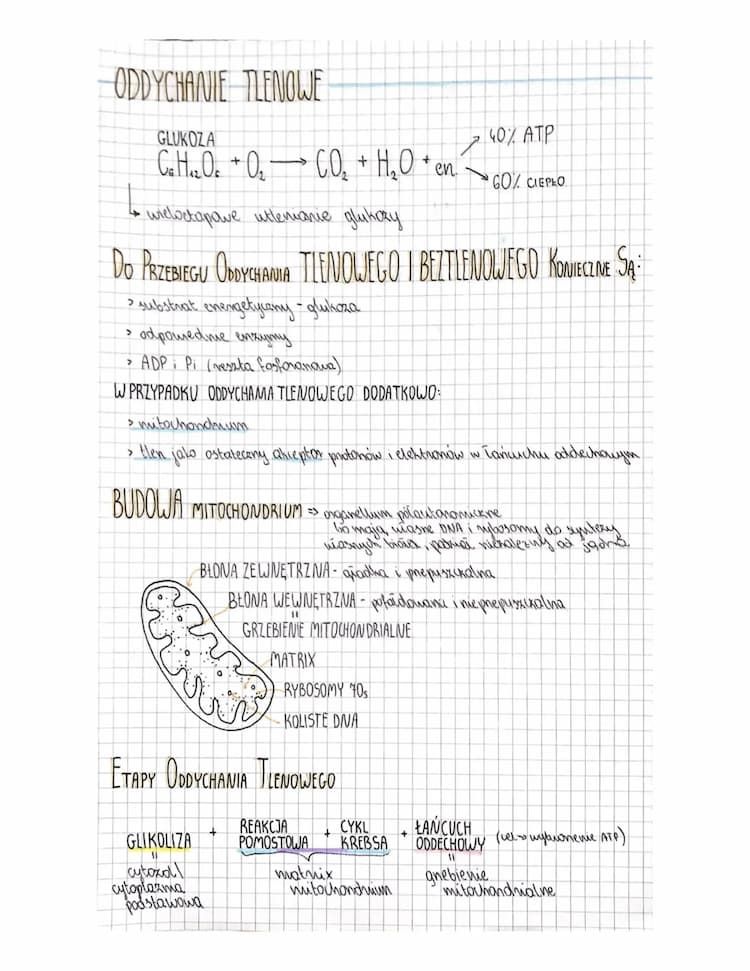 ODDYCHANIE TLENOWE
GLUKOZA
C₆H₁₂O₆ + O₂ → CO₂ + H₂O + en.
40% ATP
60% CIEPŁO
↳ wieloetapowe utlenianie glukozy
DO PRZEBIEGU ODDYCHANIA TLENOWEGO I BEZTLENOWEGO KONIECZNE SĄ:
> substrat energetyczny - glukoza
> odpowiednie enzymy
> ADP i Pi (reszta fosforanowa)
W PRZYPADKU ODDYCHANIA TLENOWEGO DODATKOWO:
> mitochondrium
> tlen jako ostateczny akceptor protonów i elektronów w łańcuchu oddechowym
BUDOWA MITOCHONDRIUM => organellum półautonomiczne
bo mają własne DNA i rybosomy do syntezy
własnych białek, podział niezależny od jądra
BŁONA ZEWNĘTRZNA - gładka i przepuszczalna
BŁONA WEWNĘTRZNA - pofałdowana i nieprzepuszczalna
=
GRZEBIENIE MITOCHONDRIALNE
MATRIX
RYBOSOMY 70s
KOLISTE DNA
ETAPY ODDYCHANIA TLENOWEGO
GLIKOLIZA + REAKCJA POMOSTOWA + CYKL KREBSA + ŁAŃCUCH ODDECHOWY (cel → wytworzenie ATP)
=
cytozol /
cytoplazma
podstawowa
matrix
mitochondrium
=
grzebienie
mitochondrialne